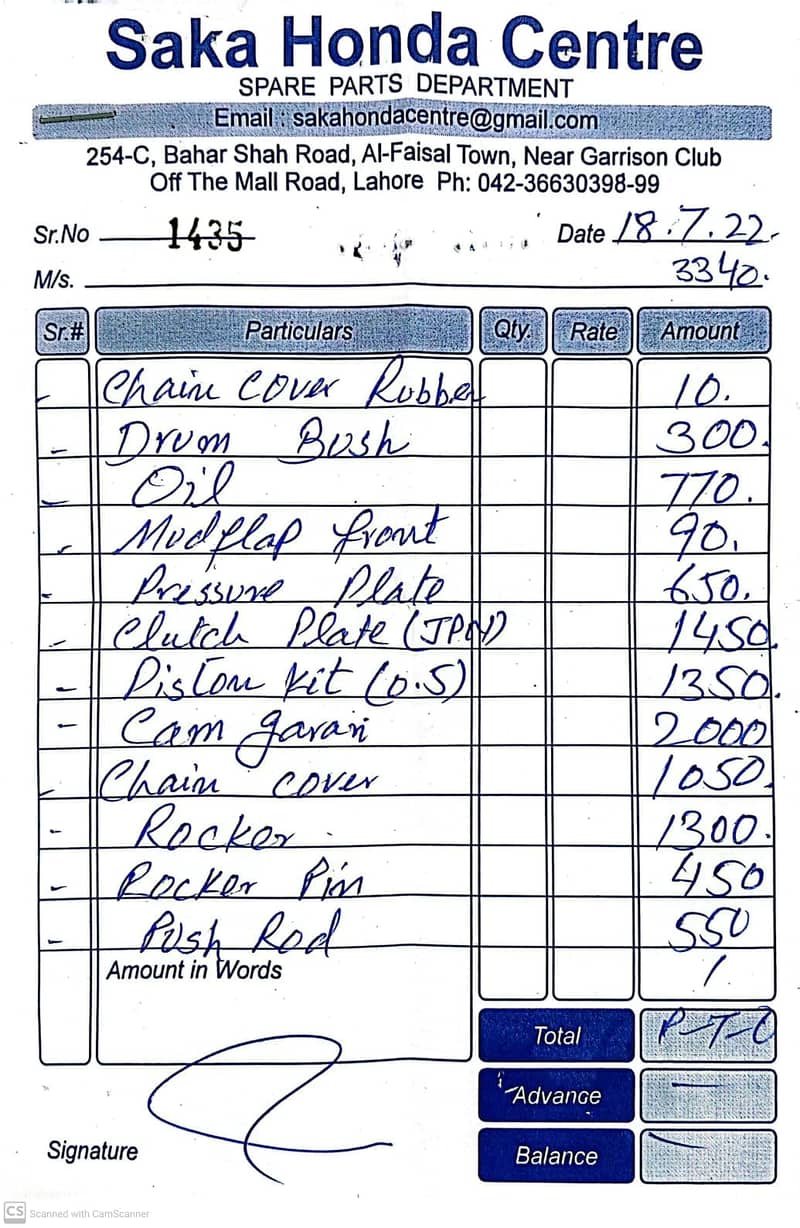 Saka Honda Centre
SPARE PARTS DEPARTMENT
Email : sakahondacentre@gmail.com
254-C, Bahar Shah Road, Al-Faisal Town, Near Garrison Club
Off The Mall Road, Lahore Ph: 042-36630398-99
Sr.No 1435 Date 18.7.22.
3340.
M/s.
Sr.# Particulars Qty. Rate Amount
- Chain cover Rubber 10.
- Drum Bush 300.
- Oil 770.
- Mudflap front 90.
- Pressure Plate 650.
- Clutch Plate (JPN) 1450.
- Piston kit (0.5) 1350.
- Cam garari 2000
- Chain cover 1050.
- Rocker 1300.
- Rocker Pin 450
- Push Rod 550
Amount in Words /
Total P-T-O
Advance -
Signature
Balance -
CS Scanned with CamScanner